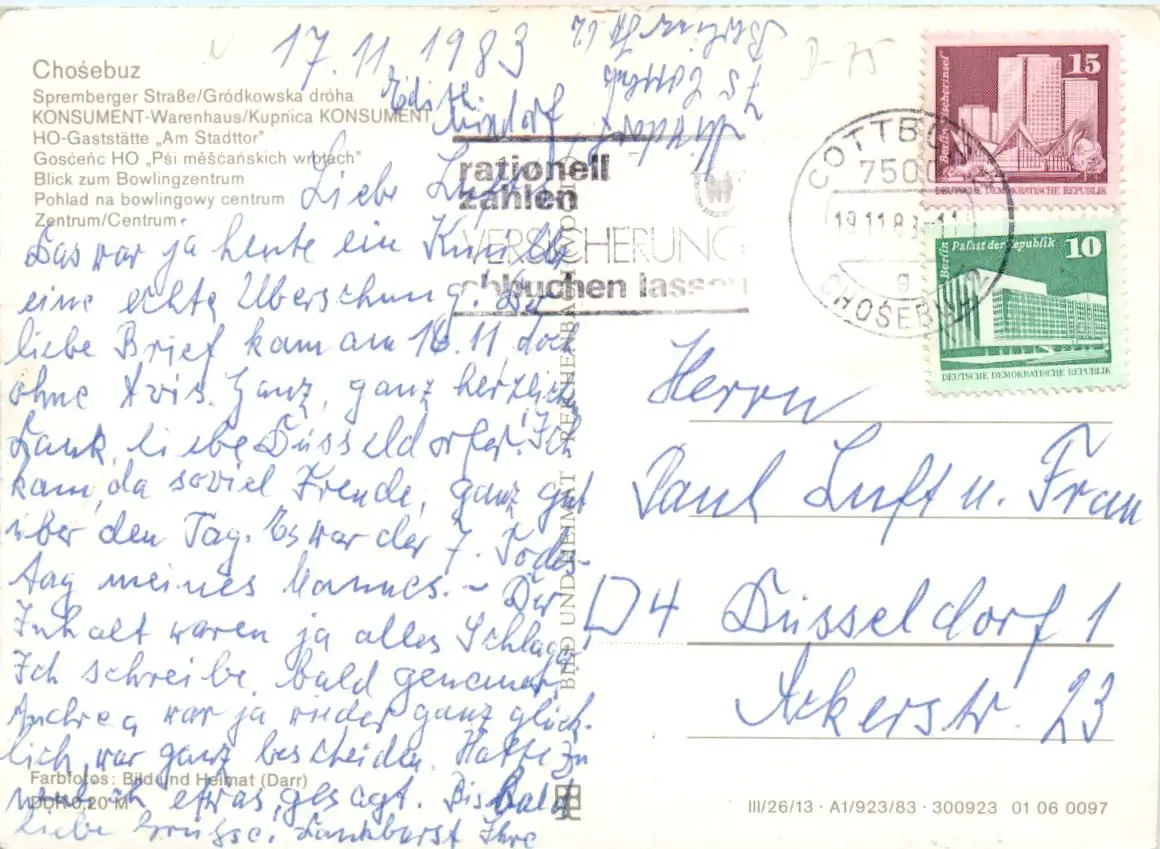 17.11.1983
Chośebuz
Spremberger Straße/Gródkowska dróha
KONSUMENT-Warenhaus/Kupnica KONSUMENT
HO-Gaststätte „Am Stadttor"
Gosćeńc HO „Pśi měšćańskich wrotach"
Blick zum Bowlingzentrum
Pohlad na bowlingowy centrum
Zentrum/Centrum
Edith
75 Cottbus
D-75
Liebe
Das war ja heute ein
eine echte Überraschung. Der
liebe Brief kam am 16.11. doch
ohne Avis. Ganz, ganz herzlichen
Dank, liebe Düsseldorfer! Ich
kam, da soviel Freude, ganz gut
über den Tag. Es war der 7. Todes-
tag meines Mannes. – Der
Inhalt waren ja alles Schlager
Ich schreibe bald genauer,
Andrea war ja wieder ganz glück-
lich, war ganz bescheiden. Hatte zu
etwas gesagt. Bis bald
liebe Grüsse. Dankbarst Ihre
Farbfotos: Bild und Heimat (Darr)
DDR 0,20 M
rationell
zahlen
VERSICHERUNG
abbuchen lassen
COTTBUS
7500
19.11.83-11
g
CHOŚEBUZ
15
Berlin Fischerinsel
DEUTSCHE DEMOKRATISCHE REPUBLIK
10
Berlin Palast der Republik
DEUTSCHE DEMOKRATISCHE REPUBLIK
BILD UND HEIMAT REICHENBACH
Herrn
Paul Luft u. Frau
D 4 Düsseldorf 1
Ackerstr. 23
III/26/13 · A1/923/83 · 300923 01 06 0097